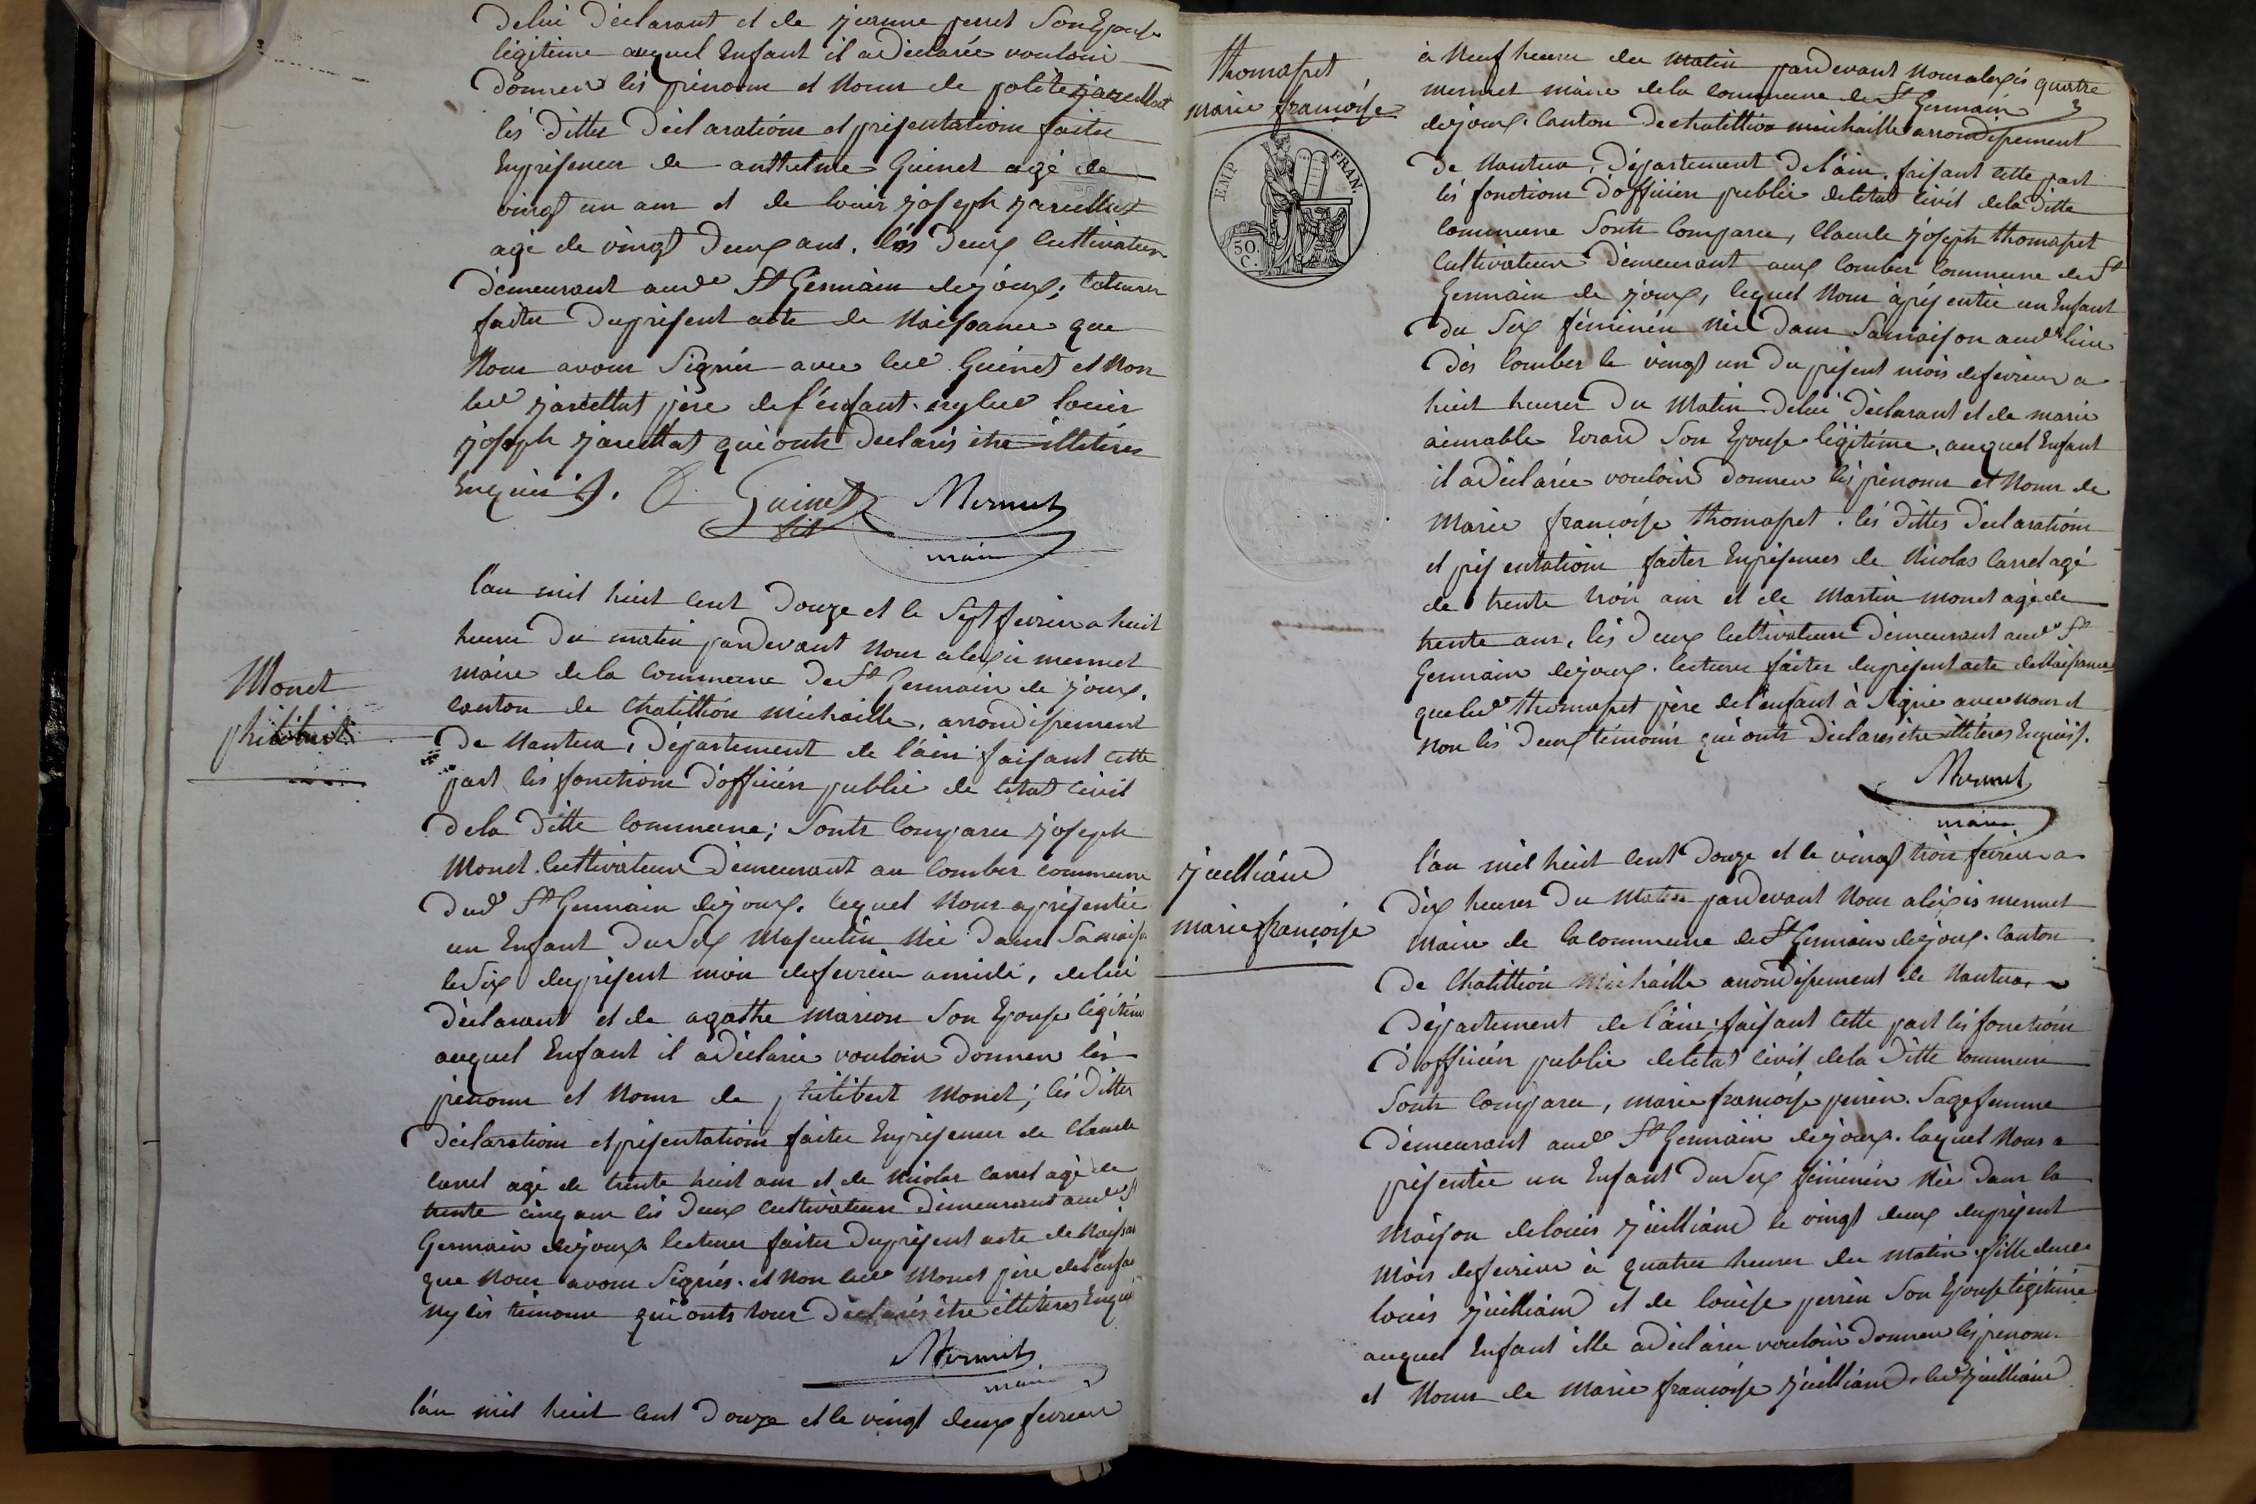 delui déclarant et de jeanne perret Son Epouse
légitime auquel Enfant il a déclarée vouloir
donner lés prénom et Noms de polite jarcellat
lés dittes déclarations et présentations faites
Enprésences de anthelme Guinet agé de
vingt un ans et de louis joseph jarcellat
agé de vingt deux ans. lés deux Cultivateurs
démeurant aud.t St Gérmain dejoux; lectures
faites duprésent acte de Naissance que
Nous avons Signés avec led.t Guinet et Non
led.t jarcellat père de l'énfant. ny led.t louis
joseph jarcellat qui onts declarés étre illétérés
Enquis /.
Guinet Mermet
maire
Monet
philibert
l'an mil huit cent douze et le Sept fevrier a huit
heures du matin pardevant Nous alexis mermet
maire de la Commune de St Germain de joux,
canton de Chatillion michaille, arrondissement
de Nantua, Département de l'ain faisant cette
part lés fonctions d'officier public de létat Civil
dela ditte Commune; Sonts Comparus joseph
Monet Cultivateur démeurant au Combes commune
dud.t St Germain déjoux. lequel Nous a présentée
un Enfant du Sex Masculin Née dans Samaison
le Six duprésent mois defevrier amidi, delui
déclarant et de agathe Marion Son Epouse légitime
auquel Enfant il a déclarée vouloir donner lés
prénoms et Noms de philibert Monet; lés dittes
déclarations et présentations faites Enprésences de Claude
Carrel agé de trente huit ans et de Nicolas Carrel agé de
trente cinq ans lés deux Cultivateurs Démeurant aud.t St
Germain déjoux lectures faites duprésent acte de Naissan
que Nous avons Signés. et Non led.t Monet père del'enfan
Ny lés témoins qui onts tous déclarés étre illétérés Enquis
Mermet
maire
l'an mil huit cent douze et le vingt deux fevrier
thomasset
marie françoise
EMP FRAN.
50 C.
à Neuf heures du Matin pardevant Nous alexis quatre
mermet maire dela commune de St Germain
dejoux. Canton de chatillion michaille arrondissement
de Nantua, Département de l'ain. faisant cette part
lés fonctions d'officier public delétat Civil dela ditte
Commune Sonts Comparus, Claude joseph thomasset
Cultivateur démeurant aux Combes Commune de St
Germain de joux, lequel Nous a présentée un Enfant
du Sex féminin Née dans Samaison aud.t lieu
dés Combes le vingt un du présent mois defevrier a
huit heures du Matin delui déclarant et de marie
aimable Son Epouse légitime, auquel Enfant
il a déclarée vouloir donner lés prénoms et Noms de
Marie françoise thomasset. lés dittes déclarations
et présentations faites Enprésences de Nicolas Carrel agé
de trente trois ans et de Martin monet agé de
trente ans, lés deux Cultivateurs démeurant aud.t St
Germain dejoux. lectures faites duprésent acte de Naissance
que led.t thomasset père de l'enfant à Signé avec Nous et
Non lés deux témoins qui onts déclarés étre illétérés Enquis /.
Mermet
maire
juilliand
marie françoise
l'an mil huit cent douze et le vingt trois fevrier a
dix heures du Matin pardevant Nous aléxis mermet
Maire de la commune de St Germain dejoux. Canton
de Chatillion Michaille arrondissement de Nantua,
Département de l'ain; faisant Cette part lés fonctions
d'officier public delétat Civil dela ditte Commune
Sonts Comparus, marie françoise perrin. Sagefemme
démeurant aud.t St Germain déjoux. laquel Nous a
présentée un Enfant du Sex féminin Née dans la
Maison delouis juilliand le vingt deux duprésent
Mois defevrier à quatre heures du matin. fille dud.t
louis juilliand et de louise perrin Son Epouse légitime
auquel Enfant ille a déclarée vouloir donner les prenoms
et Noms de Marie françoise juilliand. led.t juilliand